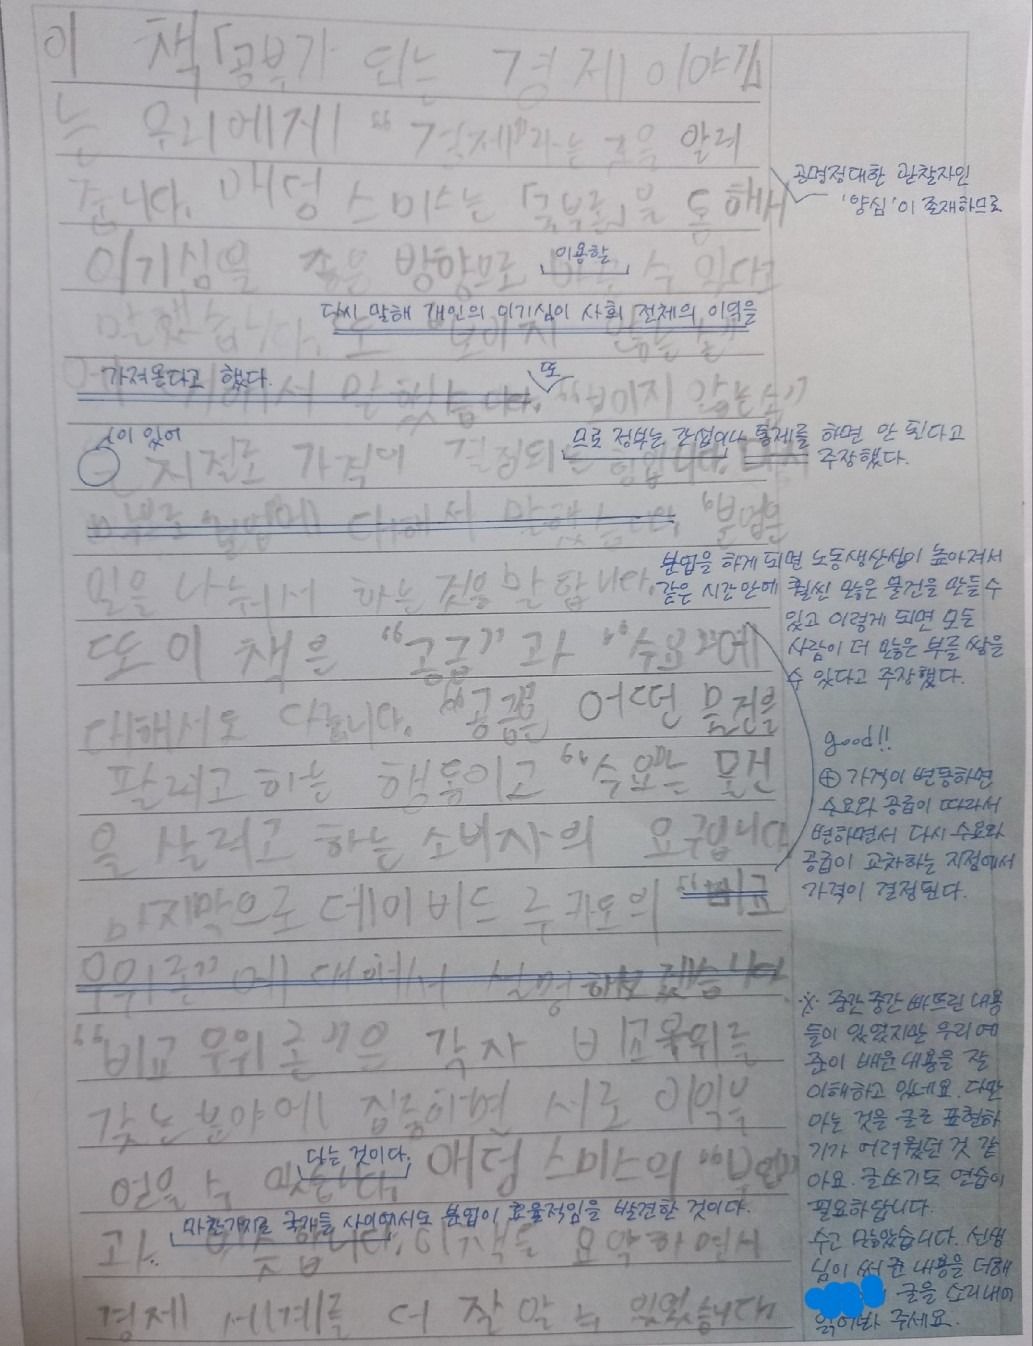 이 책「공부가 되는 경제 이야기」
는 우리에게 "경제"라는 것을 알려
줍니다. 애덤 스미스는 「국부론」을 통해서
공명정대한 관찰자인
'양심'이 존재하므로
이용할
이기심을 좋은 방향으로 수 있다고
다시 말해 개인의 이기심이 사회 전체의 이익을
말했습니다. 또 보이지 않는 손
가져온다고 했다.
또
에 대해서 말했습니다. "보이지 않는 손"
이 있어
므로 정부는 간섭이나 통제를 하면 안 된다고
주장했다.
은 저절로 가격이 결정되는 힘입니다.
에 대해서 말했습니다. "분업은
일을 나눠서 하는 것을 말합니다.
분업을 하게 되면 노동생산성이 높아져서
같은 시간 안에 훨씬 많은 물건을 만들 수
있고 이렇게 되면 모든
사람이 더 많은 부를 쌓을
수 있다고 주장했다.
또 이 책은 "공급"과 "수요"에
대해서도 다룹니다. "공급"은 어떤 물건을
팔려고 하는 행동이고 "수요"는 물건
을 살려고 하는 소비자의 요구입니다
good!!
⊕ 가격이 변동하면
수요와 공급이 따라서
변하면서 다시 수요와
공급이 교차하는 지점에서
가격이 결정된다.
마지막으로 데이비드 리카도의 "비교
우위론"에 대해서 설명해보겠습니다.
"비교 우위론"은 각자 비교우위를
갖는 분야에 집중하면 서로 이익을
다는 것이다.
얻을 수 있습니다. 애덤 스미스의 "분업"
마찬가지로 국가들 사이에서도 분업이 효율적임을 발견한 것이다.
과 비슷합니다. 이 책을 요약하면서
경제 세계를 더 잘 알 수 있었습니다
※ 중간중간 빠뜨린 내용
들이 있었지만 우리 예
준이 배운 내용을 잘
이해하고 있네요. 다만
아는 것을 글로 표현하
기가 어려웠던 것 같
아요. 글쓰기도 연습이
필요하답니다.
수고 많았습니다. 선생
님이 써준 내용을 더해
글을 소리내어
읽어봐 주세요.